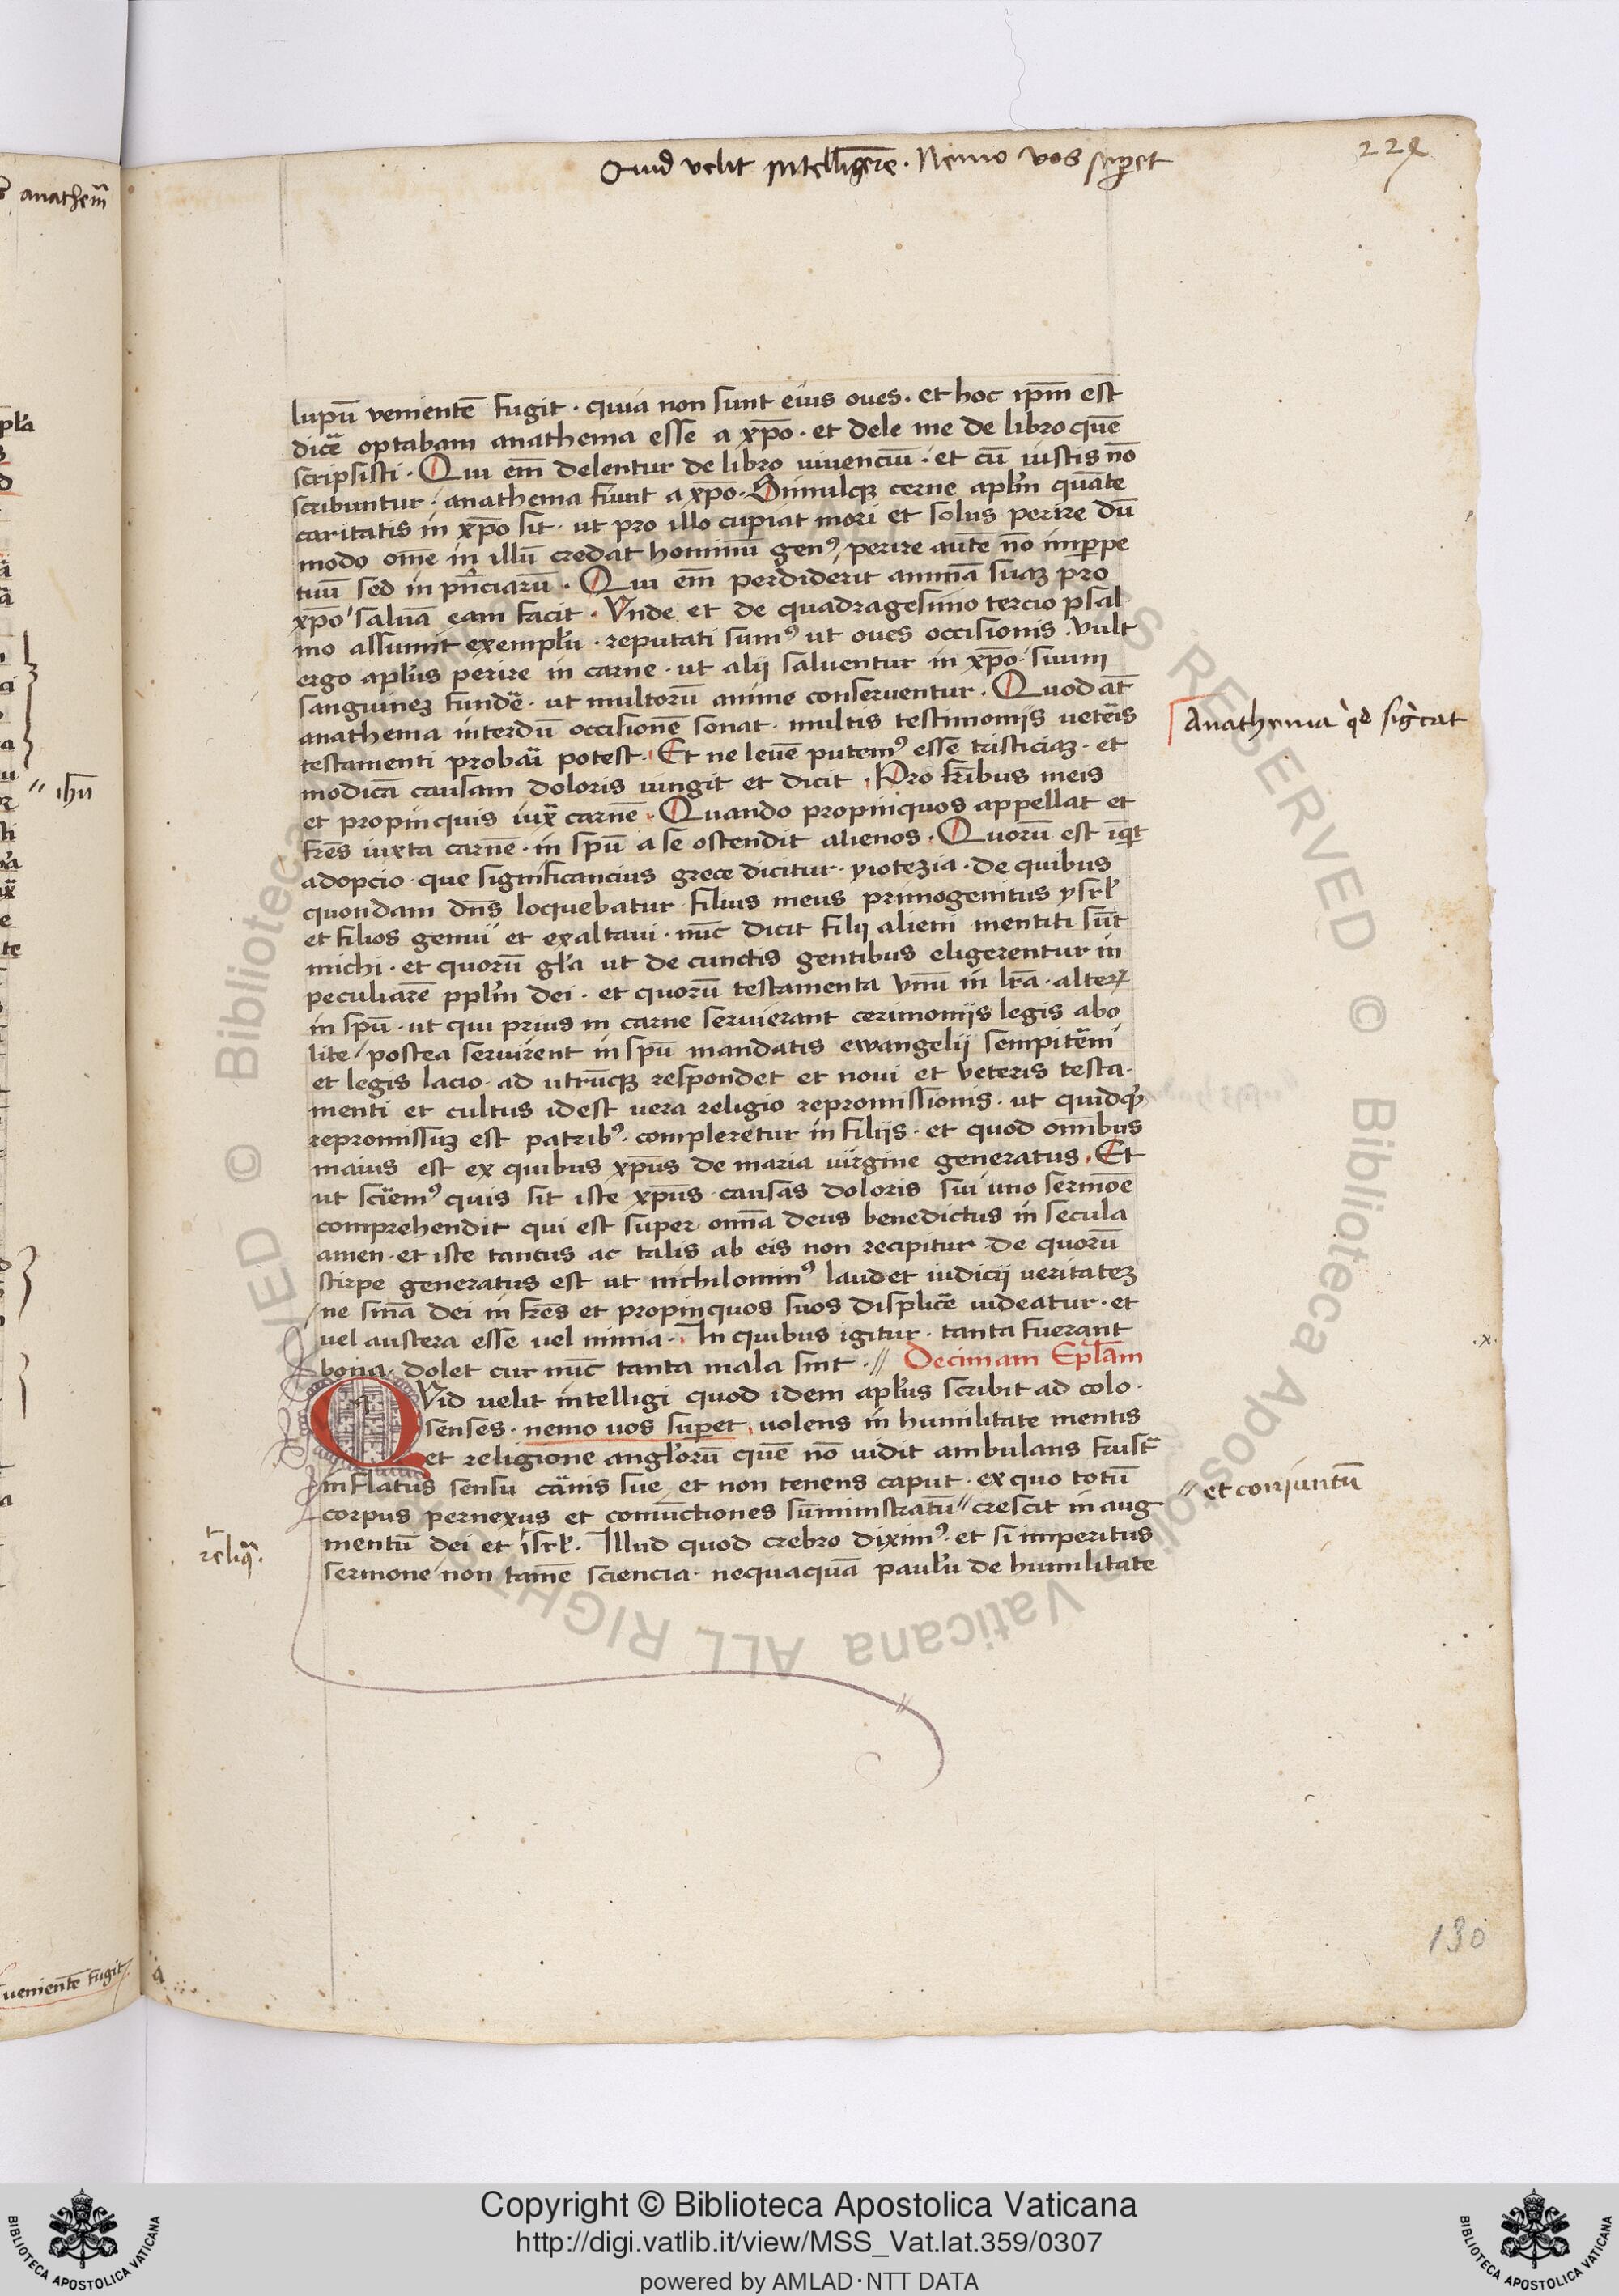 Quid velit intelligēre . Nemo vos suꝑet
224
anathem̄
lupū venientē fugit · quia non sunt eius oves · et hoc ip̄m est
dicē optabam anathema esse a xp̄o · et dele me de libro quē
scripsisti · Qui em̄ delentur de libro viuenciū · et cū iustis nō
scribuntur / anathema fiunt a xp̄o · Simulqꝫ cerne apl̄m quāte
caritatis in xp̄o sit · ut pro illo cupiat mori et solus perire dū
modo om̄e in illū credat hominū genꝰ / perire autē nō imꝑpe
tuū sed in pn̄ciarū · Qui em̄ perdiderit animā suaꝫ pro
xp̄o / saluā eam facit · Vnde et de quadragesimo tercio psal
mo assumit exemplū · reputati sumꝰ ut oves occisionis · vult
ergo apl̄us perire in carne · ut alii saluentur in xp̄o · suum
sanguineꝫ fundē · ut multorū anime conserventur · Quod at̄
anathema interdū occisionē sonat · multis testimoniis vetēis
testamenti probāi potest · Et ne levē putemꝰ esse tristiciaꝫ · et
modicā causam doloris iungit et dicit · Pro fr̄ibus meis
et propinquis iux̄ carnē · Quando propinquos appellat et
fr̄es iuxta carnē · in sp̄u a se ostendit alienos · Quorū est iqͥt
adopcio · que significancius grece dicitur · yiotezia · de quibus
quondam dn̄s loquebatur filius meus primogenitus ysrl̄
et filios genui et exaltaui · nūc dicit filii alieni mentiti sūt
michi · et quorū gl̄a ut de cunctis gentibus eligerentur in
peculiarē ppl̄m dei · et quorū testamenta vnū in lr̄a · alterꝝ
in sp̄u · ut qui prius in carne servierant cerimoniis legis abo
lite / postea servirent in sp̄u mandatis ewangelii sempitēni
et legis lacio · ad utrūqꝫ respondet et noui et veteris testa-
menti et cultus idest vera religio repromissionis · ut quidqͥd
repromissuꝫ est patribꝰ · compleretur in filiis · et quod om̄ibus
maius est ex quibus xp̄us de maria virgine generatus · Et
ut sciēmꝰ quis sit iste xp̄us · causas doloris sui uno sermōe
comprehendit qui est super om̄a deus benedictus in secula
amen · et iste tantus ac talis ab eis non recipitur de quorū
stirpe generatus est ut nichilominꝰ laudet iudicii veritateꝫ
ne sn̄ia dei in fr̄es et propinquos suos displicē videatur · et
vel austera esse vel nimia · In quibus igitur · tanta fuerant
bona · dolet cur nūc tanta mala sint · // Decimam Epl̄am
QVid velit intelligi quod idem apl̄us scribit ad colo ·
senses · nemo vos suꝑet · volens in humilitate mentis
et religione angl̄orū quē nō vidit ambulans frustͣ
inflatus sensu cānis sue et non tenens caput · ex quo totū
corpus pernexus et coniūctiones sūministratū // crescit in aug
mentū dei et ⸢ isrl̄ · Illud quod crebro diximꝰ · et si imperitus
sermone / non tamē sciencia · nequaquā paulū de humilitate
Anathema qͦd sigͥcat
// et coniuntū
⸢ reliqͣ ·
// ihū
venientē fugit
130
© Biblioteca Apostolica Vaticana ALL RIGHTS RESERVED © Biblioteca Apostolica Vaticana ALL RIGHTS RESERVED
Copyright © Biblioteca Apostolica Vaticana
http://digi.vatlib.it/view/MSS_Vat.lat.359/0307
powered by AMLAD·NTT DATA
BIBLIOTECA APOSTOLICA VATICANA
BIBLIOTECA APOSTOLICA VATICANA